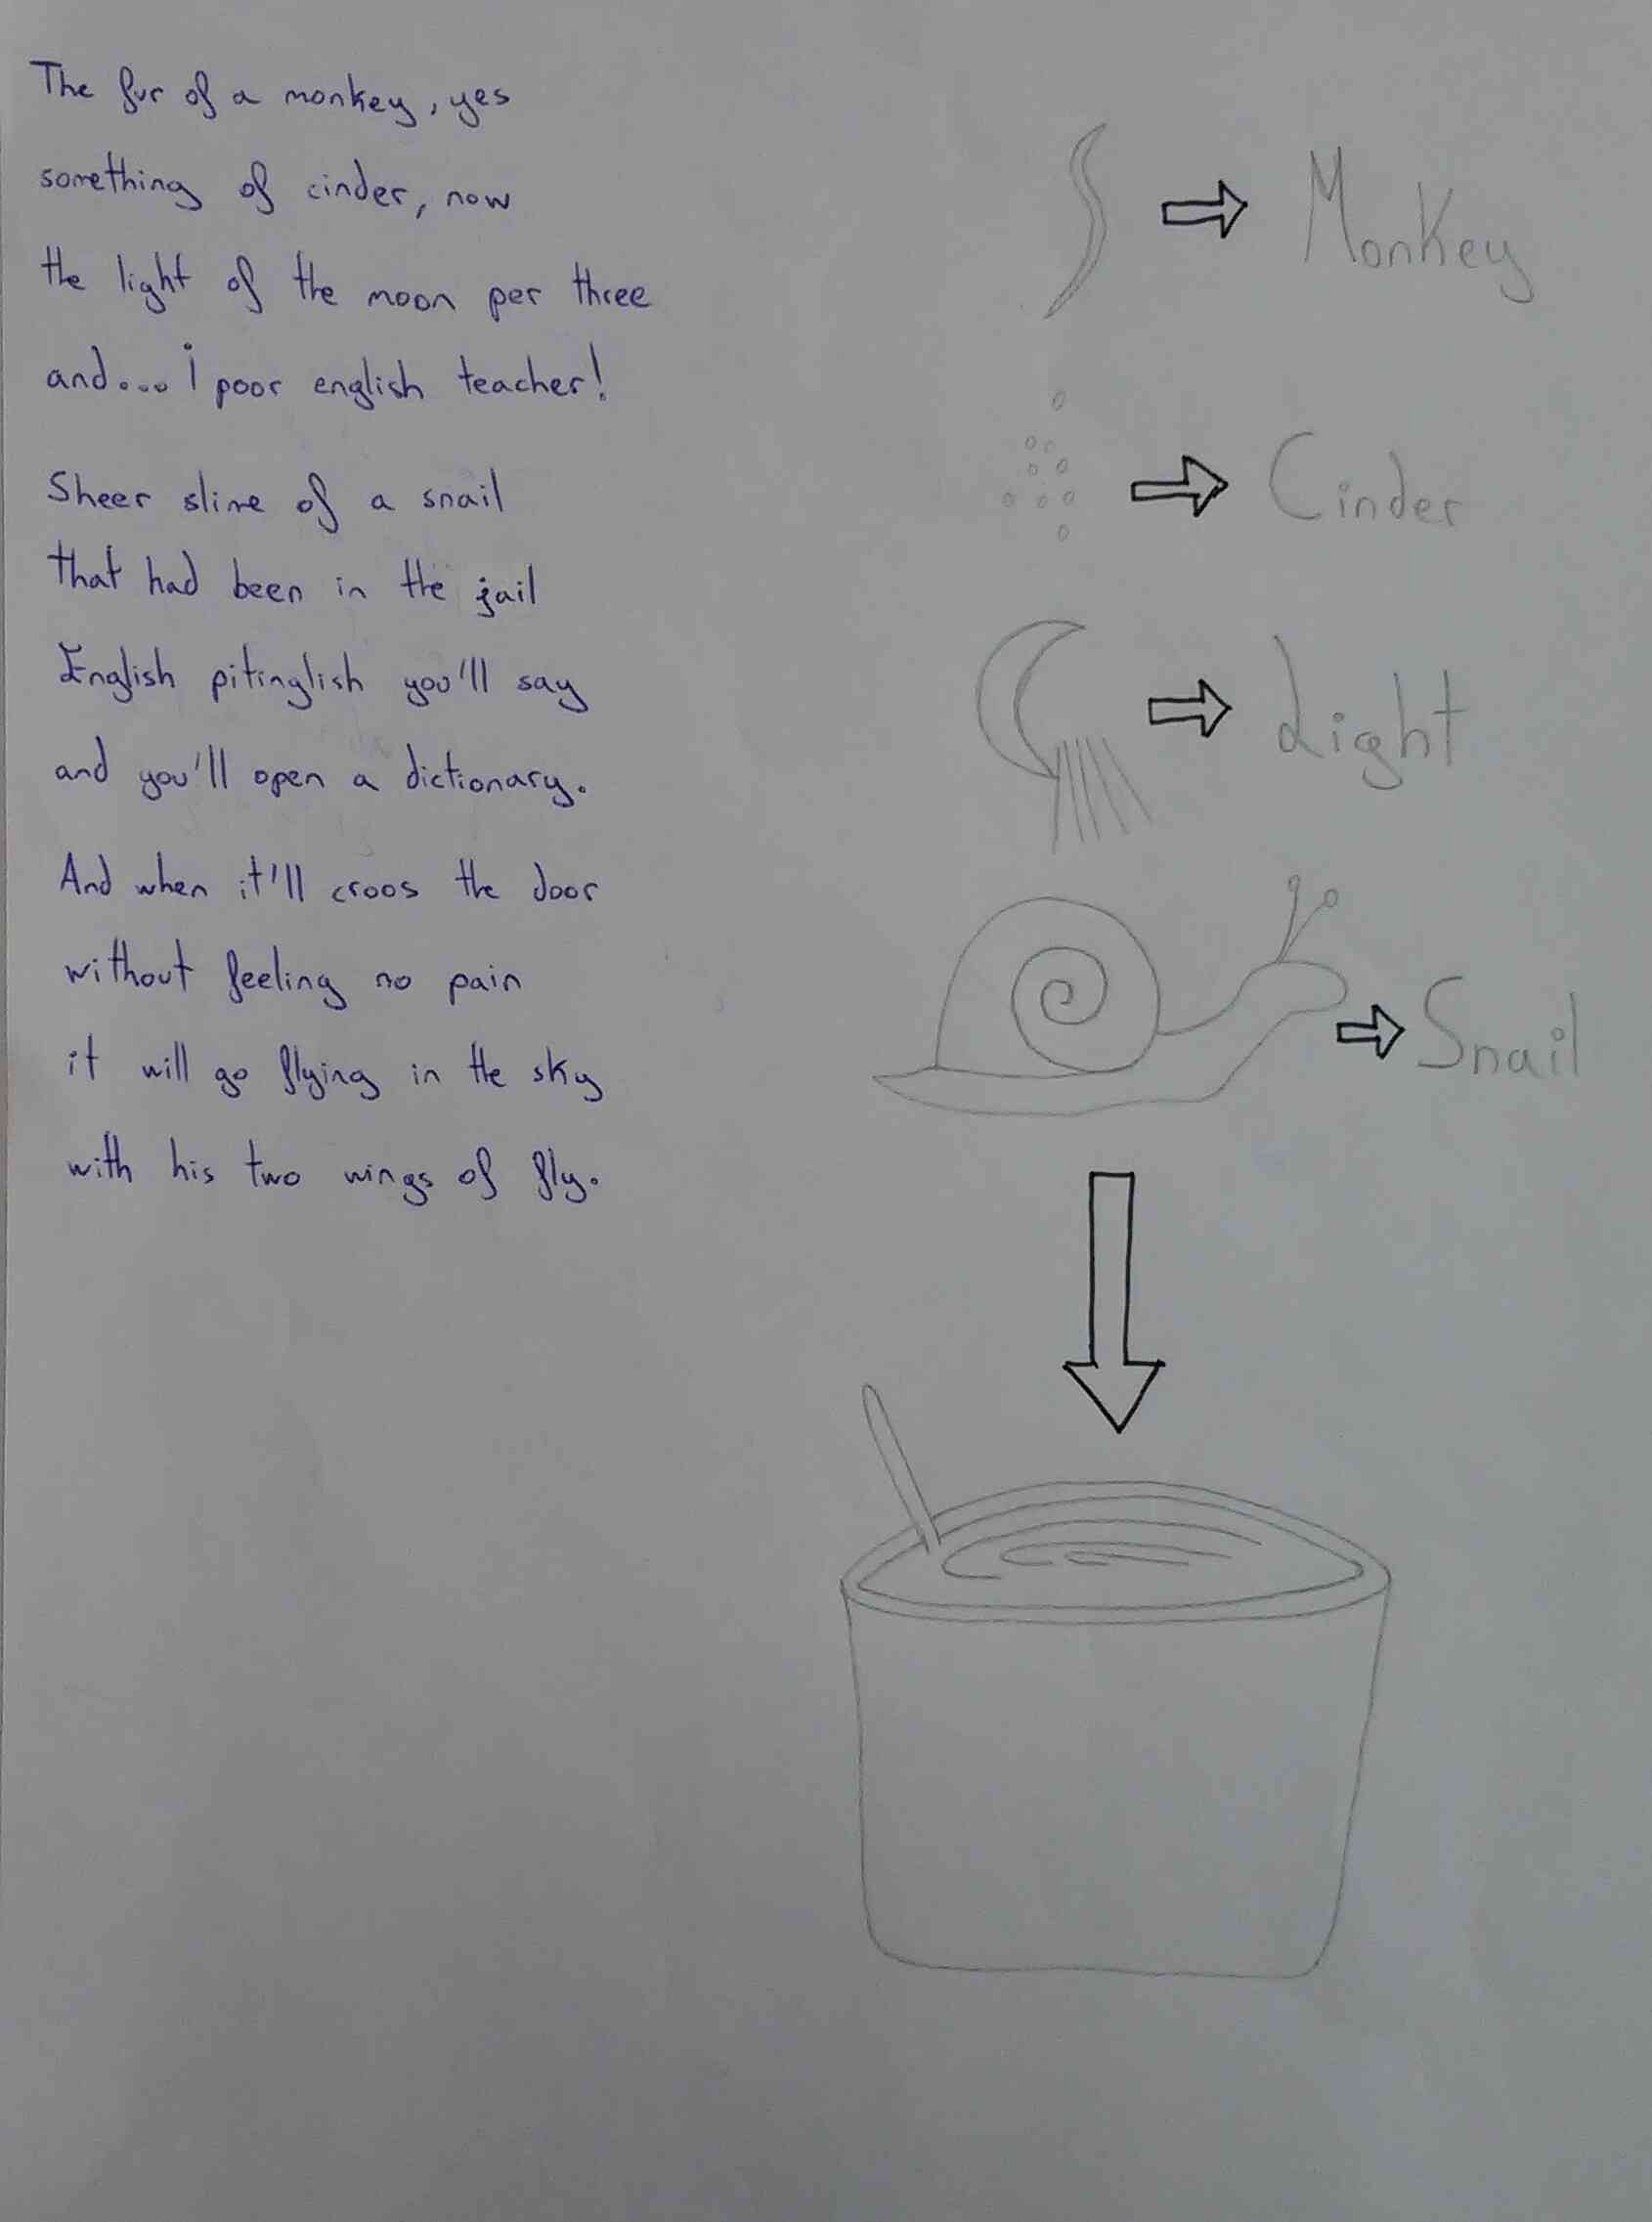 The fur of a monkey, yes
something of cinder, now
the light of the moon per three
and... ¡poor english teacher!
Sheer slime of a snail
that had been in the jail
English pitinglish you'll say
and you'll open a dictionary.
And when it'll croos the door
without feeling no pain
it will go flying in the sky
with his two wings of fly.
Monkey
Cinder
Light
Snail